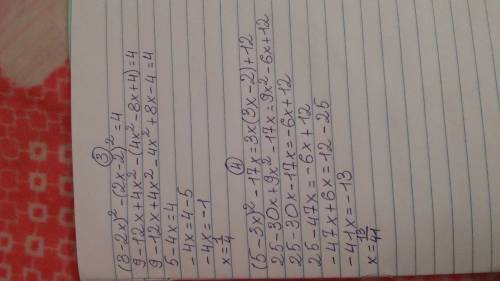 ③
(3-2x)²-(2x-2)²=4
9-12x+4x²-(4x²-8x+4)=4
9-12x+4x²-4x²+8x-4=4
5-4x=4
-4x=4-5
-4x=-1
x=1/4
④
(5-3x)²-17x=3x(3x-2)+12
25-30x+9x²-17x=9x²-6x+12
25-30x-17x=-6x+12
25-47x=-6x+12
-47x+6x=12-25
-41x=-13
x=13/41